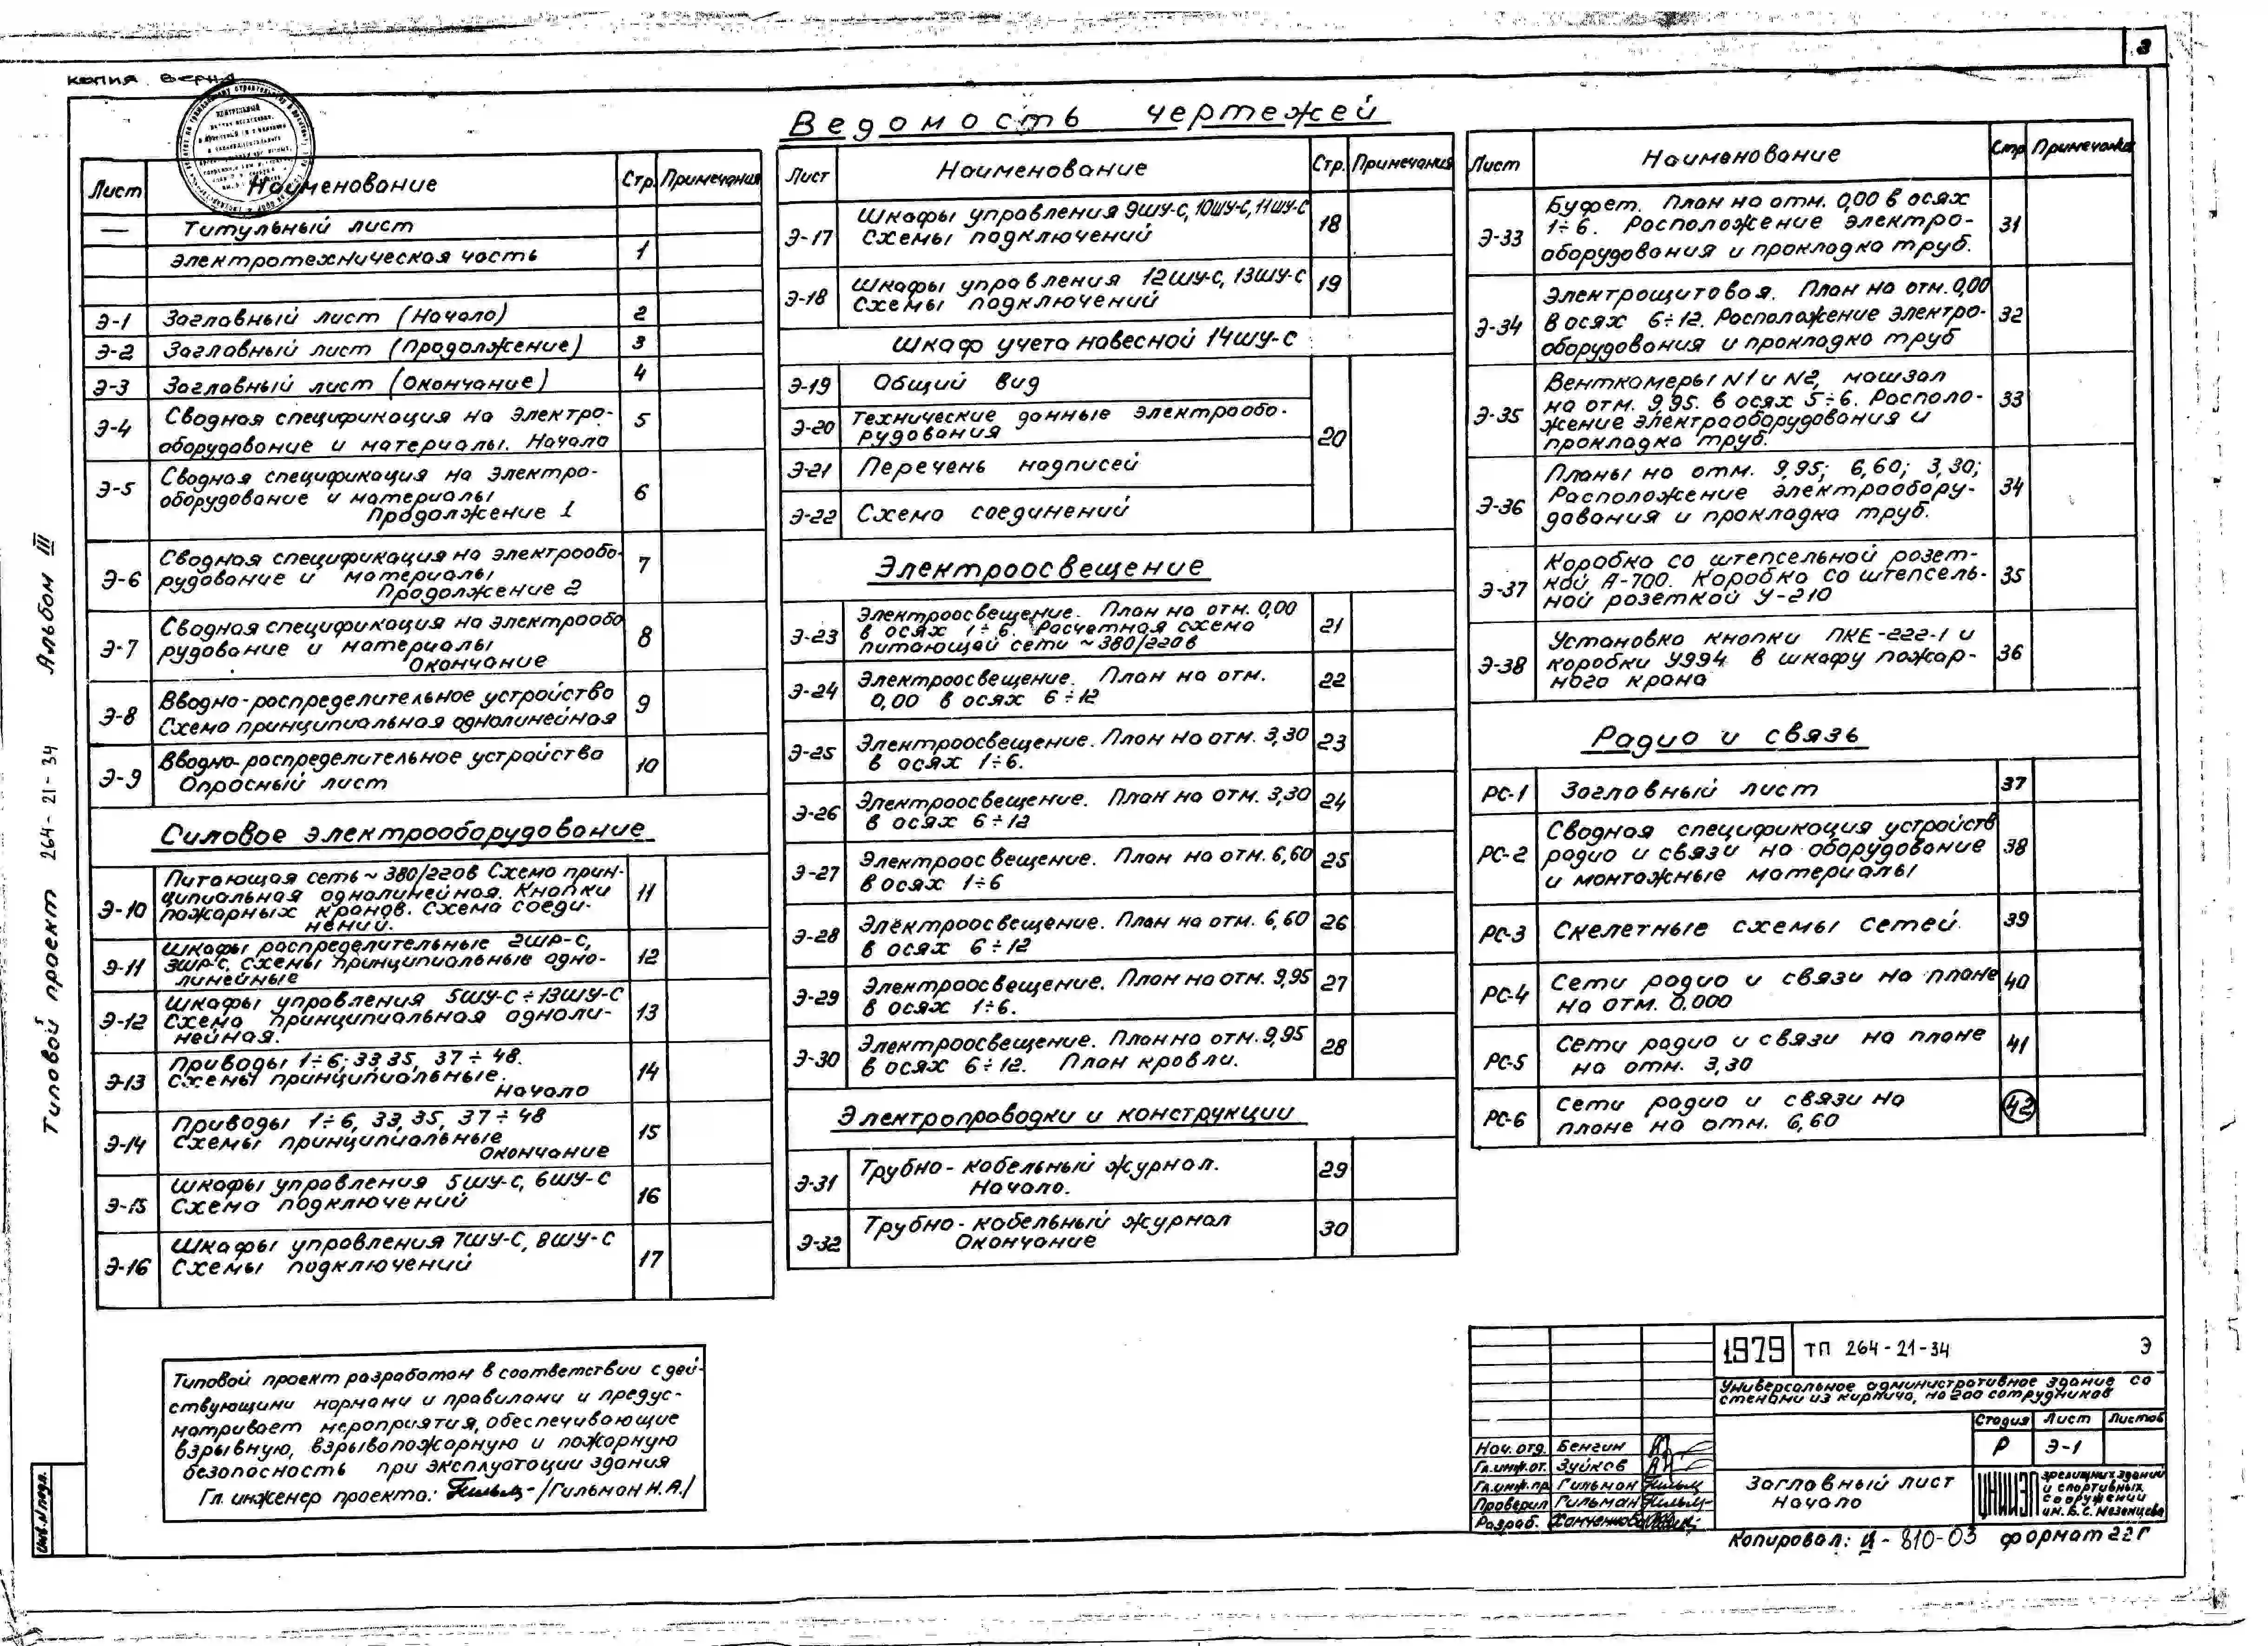 3
копия верна
Ведомость чертежей
Лист Наименование Стр. Примечания
— Титульный лист
Электротехническая часть 1
Э-1 Заглавный лист (Начало) 2
Э-2 Заглавный лист (Продолжение) 3
Э-3 Заглавный лист (Окончание) 4
Э-4 Сводная спецификация на электро- 5
оборудование и материалы. Начало
Э-5 Сводная спецификация на электро- 6
оборудование и материалы
Продолжение 1
Э-6 Сводная спецификация на электрообо- 7
рудование и материалы
Продолжение 2
Э-7 Сводная спецификация на электрообо 8
рудование и материалы
Окончание
Э-8 Вводно-распределительное устройство 9
Схема принципиальная однолинейная
Э-9 Вводно-распределительное устройство 10
Опросный лист
Силовое электрооборудование
Э-10 Питающая сеть ~ 380/220в Схема прин- 11
ципиальная однолинейная. Кнопки
пожарных кранов. Схема соеди-
нений.
Э-11 Шкафы распределительные 2ШР-С, 12
3ШР-С. Схемы принципиальные одно-
линейные
Э-12 Шкафы управления 5ШУ-С÷13ШУ-С 13
Схема принципиальная одноли-
нейная.
Э-13 Приводы 1÷6; 33 35, 37÷48. 14
Схемы принципиальные.
Начало
Э-14 Приводы 1÷6, 33, 35, 37÷48 15
Схемы принципиальные
Окончание
Э-15 Шкафы управления 5ШУ-С, 6ШУ-С 16
Схема подключений
Э-16 Шкафы управления 7ШУ-С, 8ШУ-С 17
Схемы подключений
Лист Наименование Стр. Примечания
Э-17 Шкафы управления 9ШУ-С, 10ШУ-С, 11ШУ-С 18
Схемы подключений
Э-18 Шкафы управления 12ШУ-С, 13ШУ-С 19
Схемы подключений
Шкаф учета навесной 14ШУ-С
Э-19 Общий вид
Э-20 Технические данные электрообо- 20
рудования
Э-21 Перечень надписей
Э-22 Схема соединений
Электроосвещение
Э-23 Электроосвещение. План на отм. 0,00 21
в осях 1÷6. Расчетная схема
питающей сети ~380/220в
Э-24 Электроосвещение. План на отм. 22
0,00 в осях 6÷12
Э-25 Электроосвещение. План на отм. 3,30 23
в осях 1÷6.
Э-26 Электроосвещение. План на отм. 3,30 24
в осях 6÷12
Э-27 Электроосвещение. План на отм. 6,60 25
в осях 1÷6
Э-28 Электроосвещение. План на отм. 6,60 26
в осях 6÷12
Э-29 Электроосвещение. План на отм. 9,95 27
в осях 1÷6.
Э-30 Электроосвещение. План на отм. 9,95 28
в осях 6÷12. План кровли.
Электропроводки и конструкции
Э-31 Трубно-кабельный журнал. 29
Начало.
Э-32 Трубно-кабельный журнал 30
Окончание
Лист Наименование Стр Примечания
Э-33 Буфет. План на отм. 0,00 в осях 31
1÷6. Расположение электро-
оборудования и прокладка труб.
Э-34 Электрощитовая. План на отм. 0,00 32
в осях 6÷12. Расположение электро-
оборудования и прокладка труб
Э-35 Венткамеры N1 и N2, машзал 33
на отм. 9,95. в осях 5÷6. Располо-
жение электрооборудования и
прокладка труб.
Э-36 Планы на отм. 9,95; 6,60; 3,30; 34
Расположение электрообору-
дования и прокладка труб.
Э-37 Коробка со штепсельной розет- 35
кой А-700. Коробка со штепсель-
ной розеткой У-210
Э-38 Установка кнопки ПКЕ-222-1 и 36
коробки У994 в шкафу пожар-
ного крана
Радио и связь
РС-1 Заглавный лист 37
РС-2 Сводная спецификация устройств 38
радио и связи на оборудование
и монтажные материалы
РС-3 Скелетные схемы сетей. 39
РС-4 Сети радио и связи на плане 40
на отм. 0.000
РС-5 Сети радио и связи на плане 41
на отм. 3,30
РС-6 Сети радио и связи на 42
плане на отм. 6,60
Типовой проект 264-21-34 Альбом III
Инв. N подл.
Типовой проект разработан в соответствии с дей-
ствующими нормами и правилами и предус-
матривает мероприятия, обеспечивающие
взрывную, взрывопожарную и пожарную
безопасность при эксплуатации здания
Гл. инженер проекта: /Гильман Н.А./
1979 ТП 264-21-34 Э
Универсальное административное здание со
стенами из кирпича, на 200 сотрудников
Стадия Лист Листов
Р Э-1
Нач. отд. Бенгин
Гл.инж.от. Зуйков
Гл.инж.пр Гильман
Проверил Гильман
Разраб. Ханченкова
Заглавный лист
Начало
ЦНИИЭП зрелищных зданий
и спортивных
сооружений
им. Б.С. Мезенцева
Копировал: Ц-810-03 формат 22Г